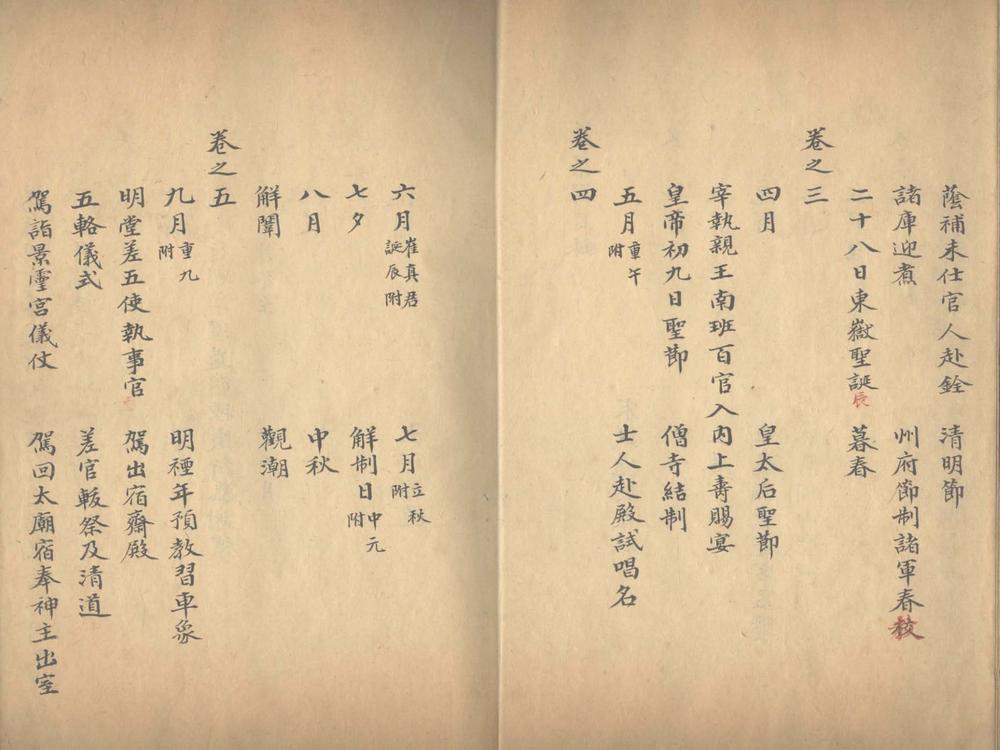 蔭補未仕官人赴銓　清明節
諸庫迎煮　州府節制諸軍春教
二十八日東嶽聖誕辰　暮春
卷之三
四月　皇太后聖節
宰執親王南班百官入內上壽賜宴
皇帝初九日聖節　僧寺結制
五月重午附　士人赴殿試唱名
卷之四
六月崔真君誕辰附　七月立秋附
七夕　解制日中元附
八月　中秋
解闈　觀潮
卷之五
九月重九附　明禋年預教習車象
明堂差五使執事官　駕出宿齋殿
五輅儀式　差官軷祭及清道
駕詣景靈宮儀仗　駕回太廟宿奉神主出室